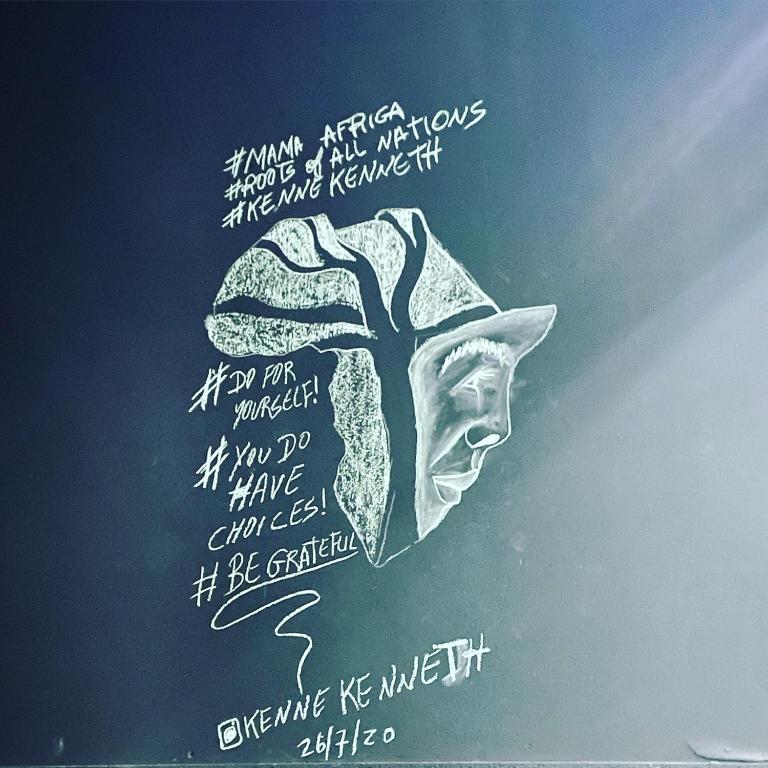 #MAMA AFRIGA
#ROOTS of ALL NATIONS
#KENNE KENNETH
#DO FOR
YOURSELF!
#YOU DO
HAVE
CHOICES!
#BE GRATEFUL
@KENNE KENNETH
26/7/20